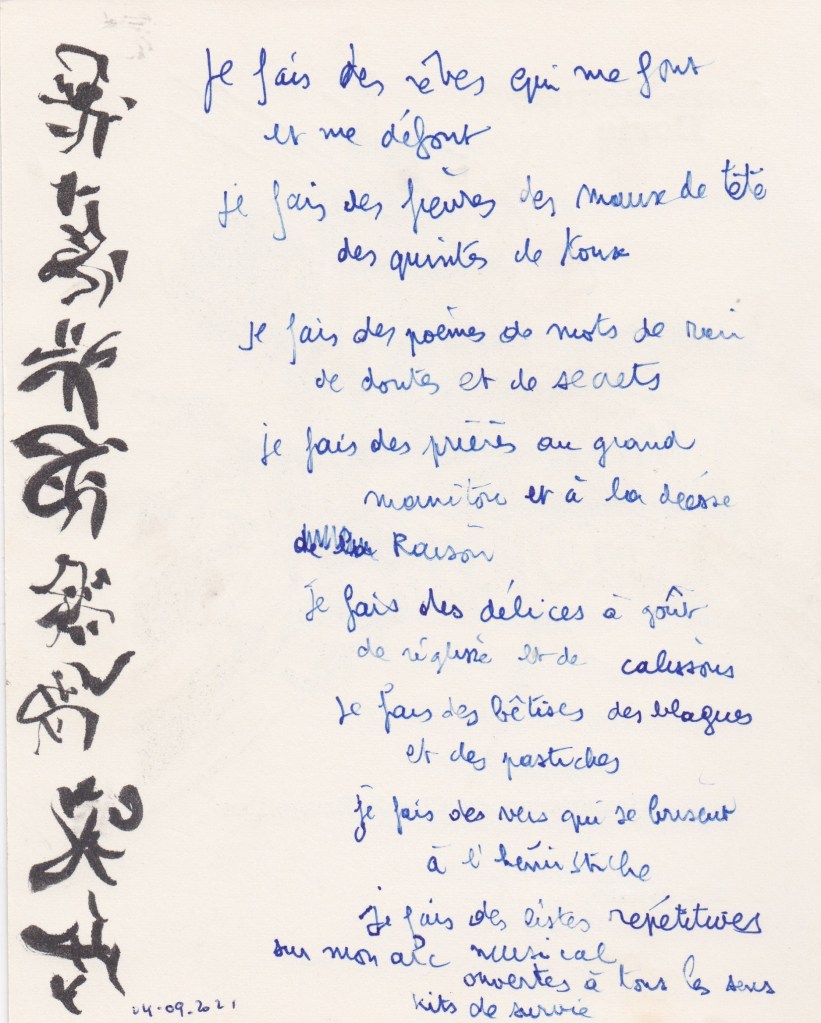 Je fais des rêves qui me font
et me défont
je fais des fièvres des maux de tête
des quintes de toux
je fais des poèmes de mots de rien
de doutes et de secrets
je fais des prières au grand
manitou et à la déesse
de la Raison
je fais des délices à goût
de réglisse et de calissons
je fais des bêtises des blagues
et des pastiches
je fais des vers qui se brisent
à l'hémistiche
je fais des listes répétitives
sur mon arc musical
ouvertes à tous les sens
kits de survie
24.09.2021